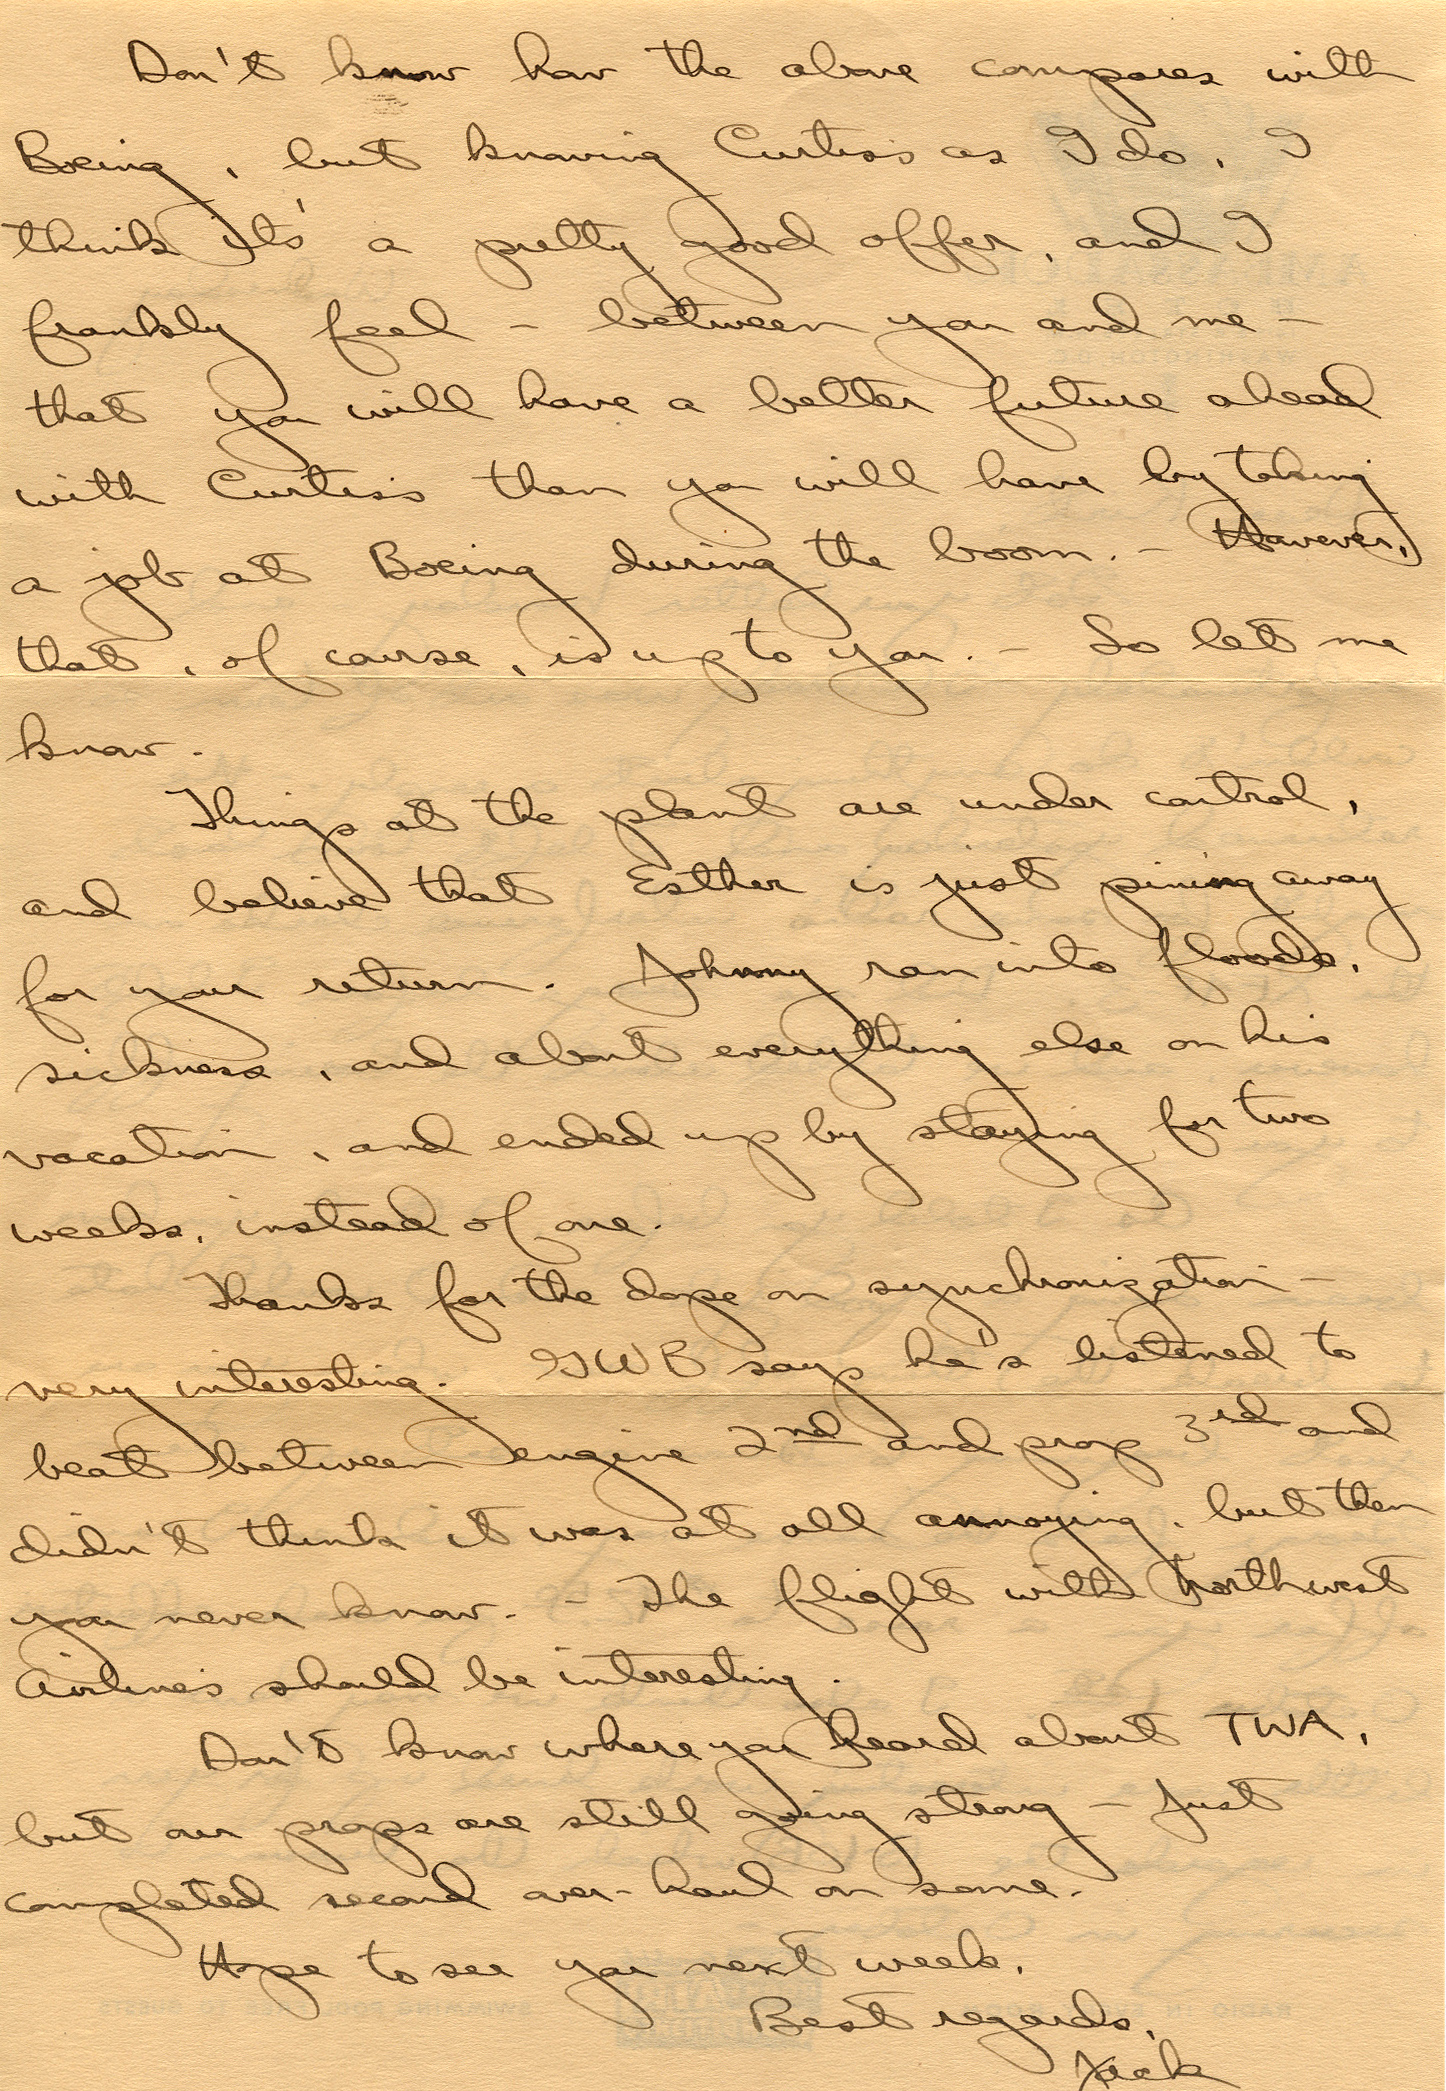 Don't know how the above compares with
Boeing, but knowing Curtiss as I do, I
think its' a pretty good offer, and I
frankly feel - between you and me -
that you will have a better future ahead
with Curtiss than you will have by taking
a job at Boeing during the boom. - However,
that, of course, is up to you. - So let me
know.
Things at the plant are under control,
and believe that Esther is just pining away
for your return. Johnny ran into floods,
sickness, and about everything else on his
vacation, and ended up by staying for two
weeks, instead of one.
Thanks for the dope on synchronization -
very interesting. GWB says he's listened to
beat between engine 2nd and prop 3rd and
didn't think it was at all annoying, but then
you never know. - The flight with Northwest
Airlines should be interesting.
Don't know where you heard about TWA,
but our props are still going strong - Just
completed second over-haul on some.
Hope to see you next week.
Best regards,
Jack